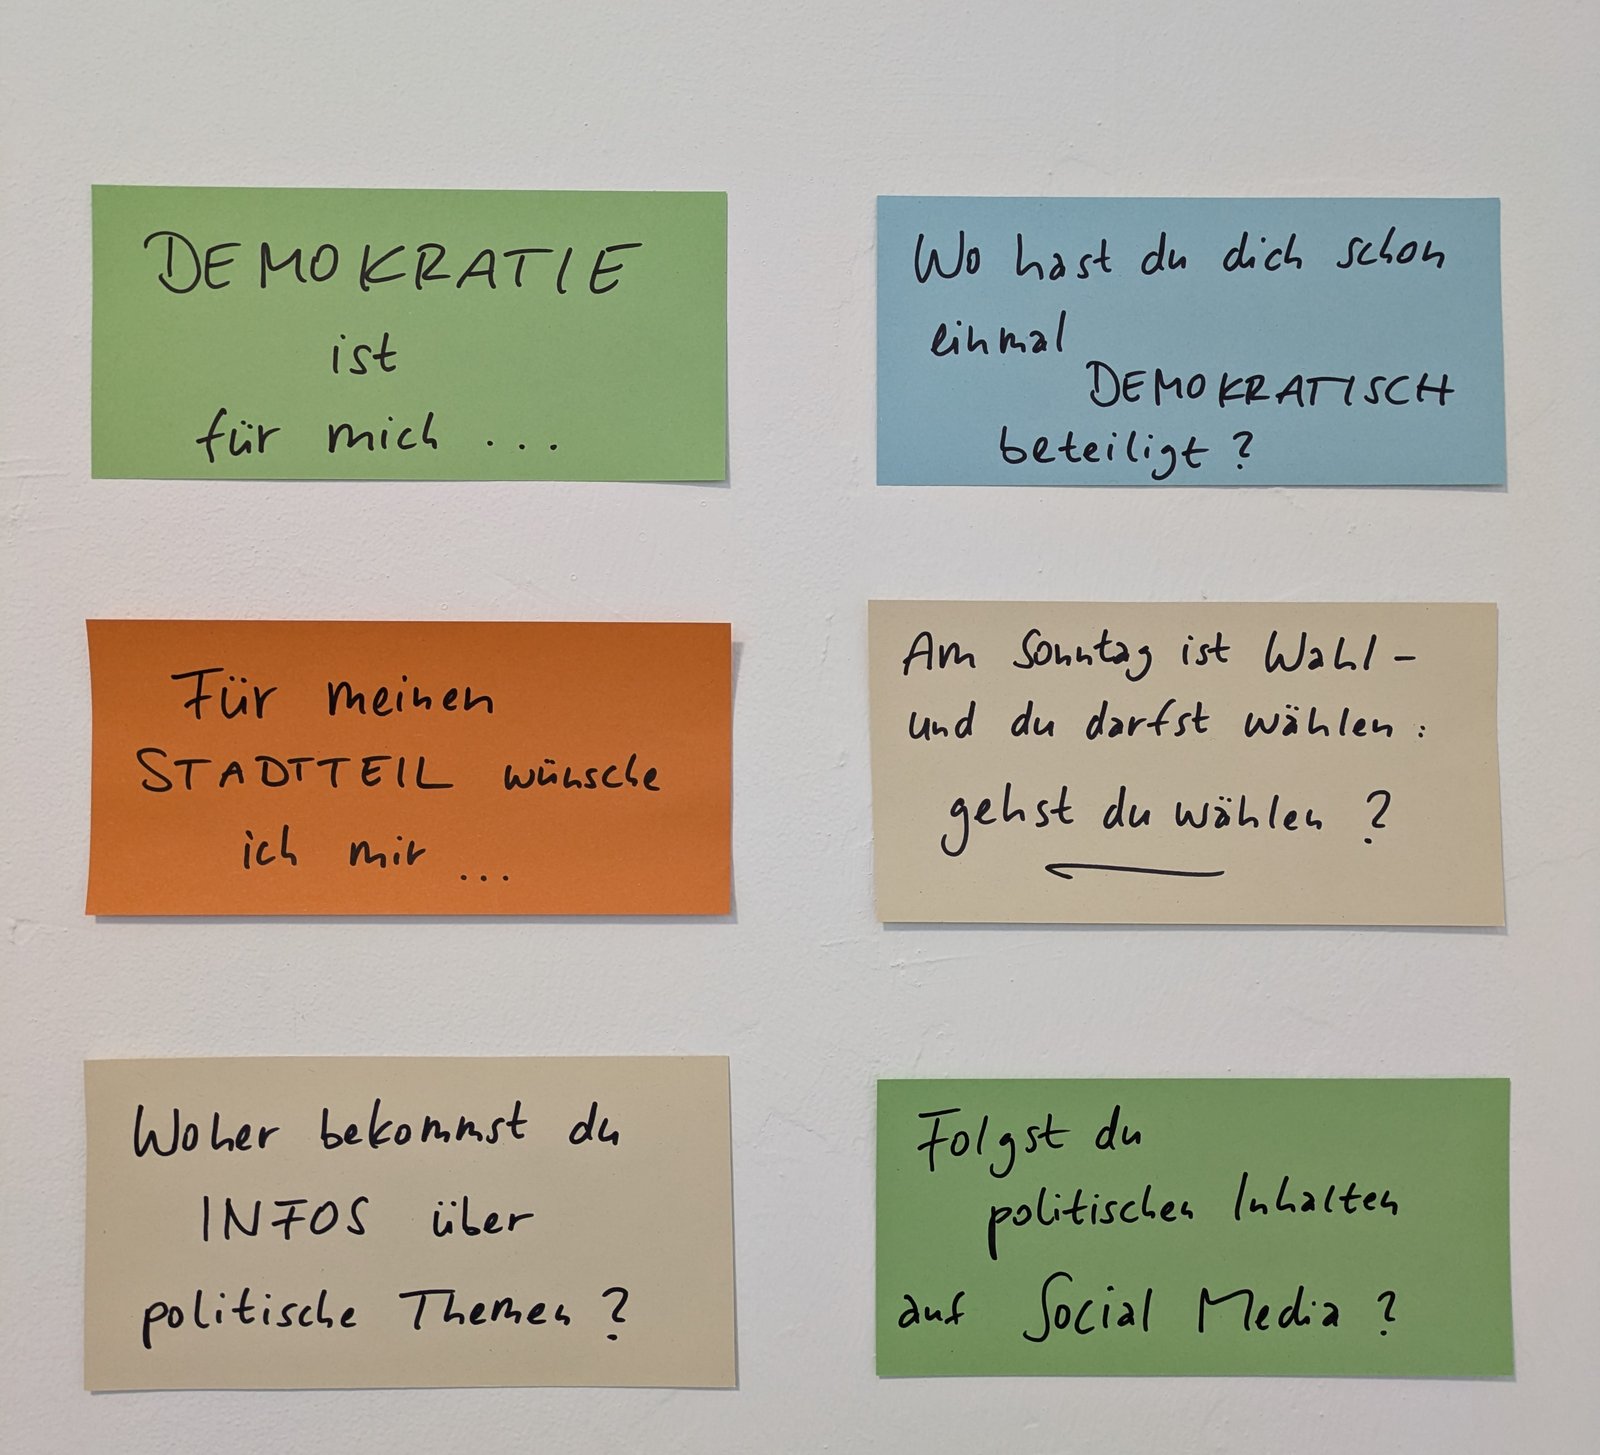 DEMOKRATIE
ist
für mich ...
Wo hast du dich schon
einmal
DEMOKRATISCH
beteiligt?
Für meinen
STADTTEIL wünsche
ich mir ...
Am Sonntag ist Wahl -
und du darfst wählen:
gehst du wählen?
Woher bekommst du
INFOS über
politische Themen?
Folgst du
politischen Inhalten
auf Social Media?